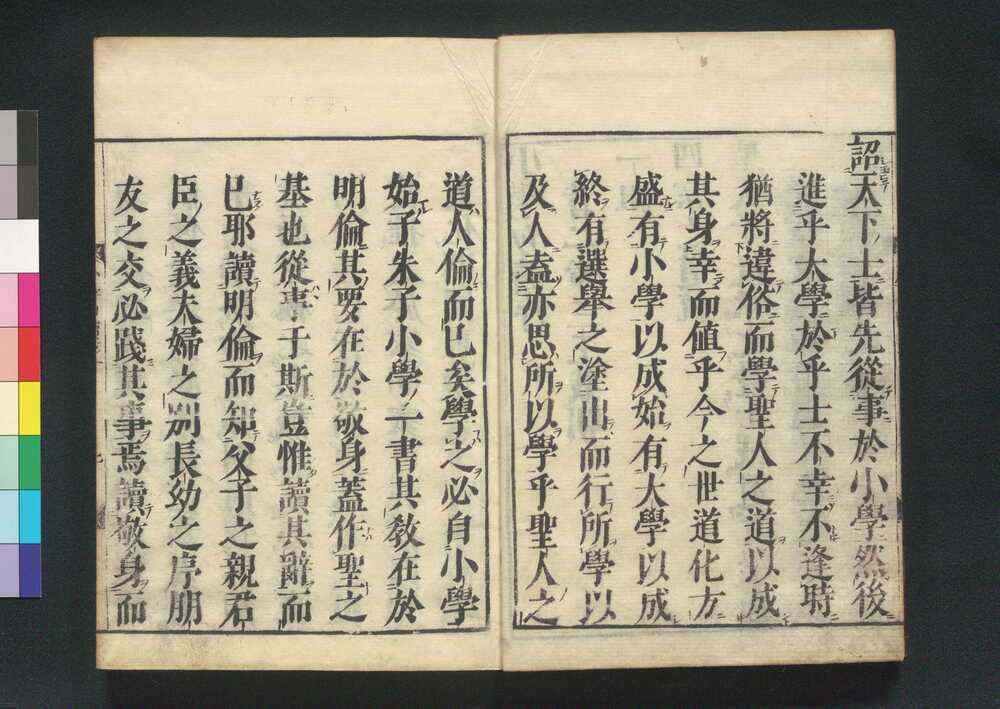 詔天下士皆先從事於小學然後
進乎大學於乎士不幸不逢時
猶將違俗而學聖人之道以成
其身幸而値乎今之世道化方
盛有小學以成始有大學以成
終有選舉之塗出而行所學以
及人盍亦思所以學乎聖人之
道人倫而已矣學之必自小學
始子朱子小學一書其敎在於
明倫其要在於敬身蓋作聖之
基也從事于斯豈惟讀其辭而
已耶讀明倫而知父子之親君
臣之義夫婦之別長幼之序朋
友之交必踐其事焉讀敬身而